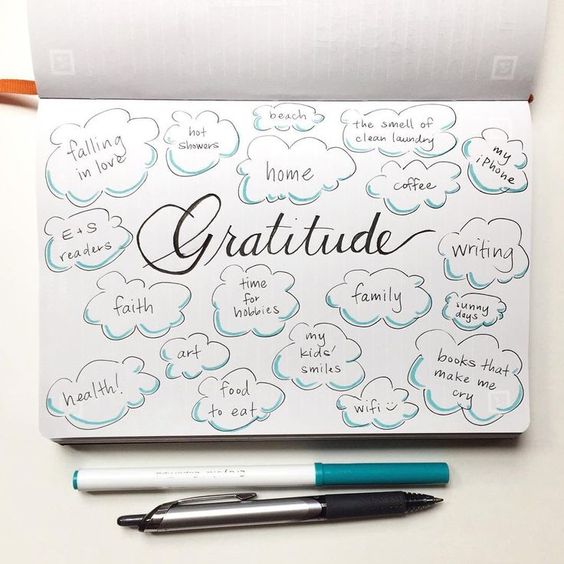 falling
in love
hot
showers
beach
the smell of
clean laundry
my
iPhone
home
coffee
E + S
readers
Gratitude
writing
faith
time
for
hobbies
family
sunny
days
art
my
kids'
smiles
books that
make me
cry
health!
food
to eat
wifi